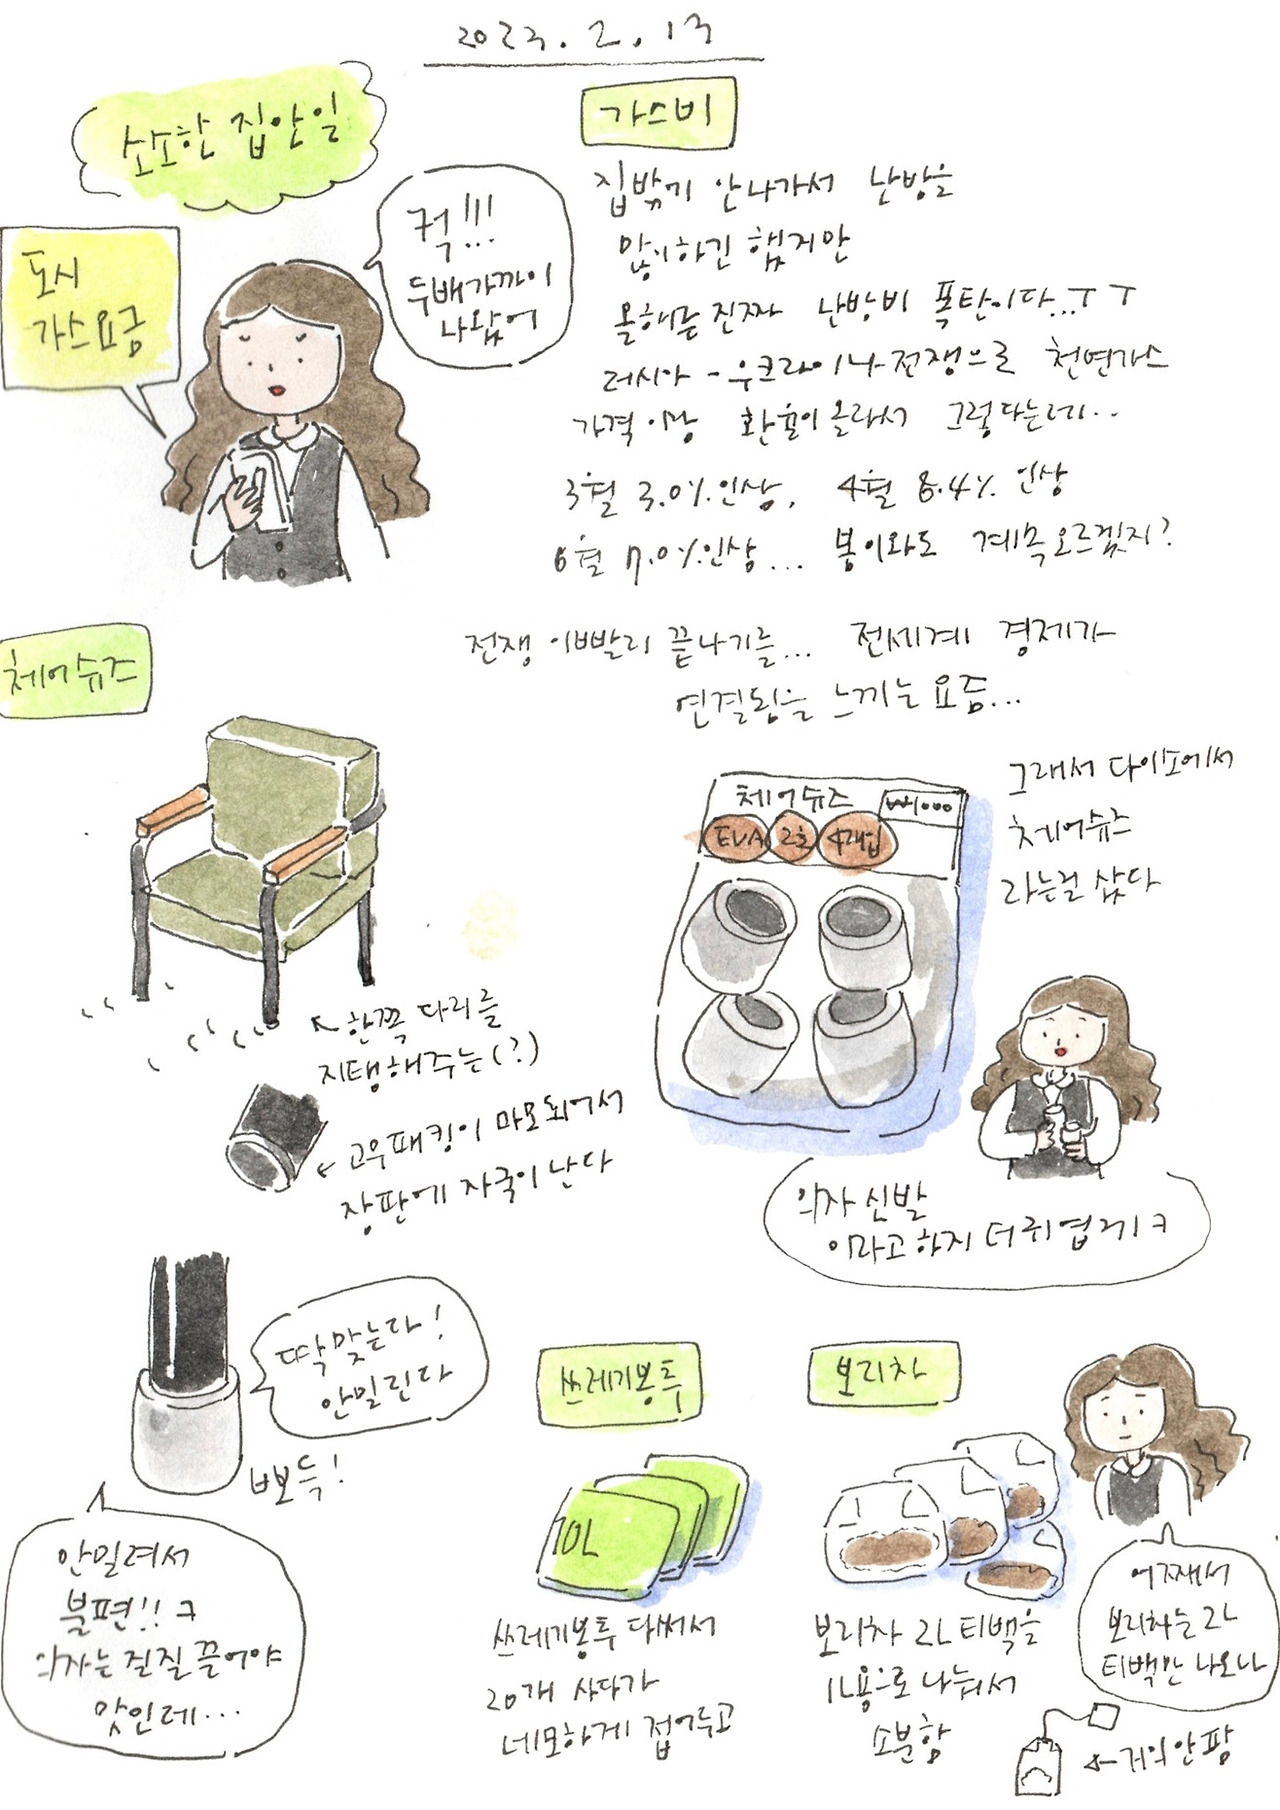 2023.2.13
소소한 집안일
도시
가스요금
컥!!!
두배가까이
나왔어
가스비
집밖에 안나가서 난방을
많이하긴 했지만
올해는 진짜 난방비 폭탄이다...ㅜㅜ
러시아-우크라이나 전쟁으로 천연가스
가격이랑 환율이 올라서 그렇다는데..
3월 3.0%인상, 4월 8.4% 인상
6월 7.0%인상... 봄이와도 계속오르겠지?
전쟁이 빨리 끝나기를... 전세계 경제가
연결됨을 느끼는 요즘...
체어슈즈
↖한쪽 다리를
지탱해주는(?)
← 고무패킹이 마모되어서
장판에 자국이 난다
체어슈즈 ₩1000
EVA 2호 4개입
그래서 다이소에서
체어슈즈
라는걸 샀다
의자 신발
이라고 하지 더 귀엽게ㅋ
딱맞는다!
안밀린다
뽀득!
안밀려서
불편!!ㅋ
의자는 질질 끌어야
맛인데...
쓰레기봉투
10L
쓰레기봉투 다써서
20개 사다가
네모하게 접어두고
보리차
보리차 2L 티백을
1L용으로 나눠서
소분함
어째서
보리차는 2L
티백만 나오나
←거의안팜